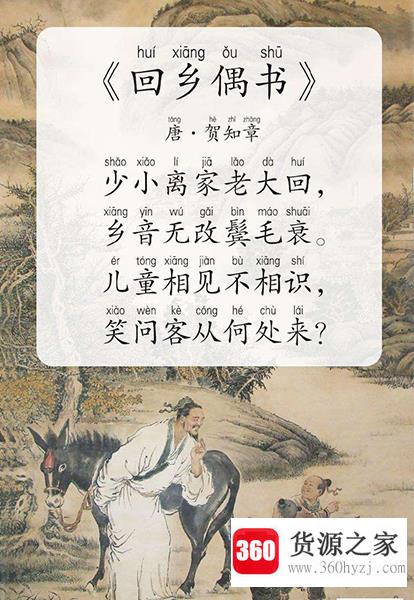 huí xiāng ǒu shū
《回乡偶书》
táng hè zhī zhāng
唐·贺知章
shǎo xiǎo lí jiā lǎo dà huí
少小离家老大回，
xiāng yīn wú gǎi bìn máo shuāi
乡音无改鬓毛衰。
ér tóng xiāng jiàn bù xiāng shí
儿童相见不相识，
xiào wèn kè cóng hé chù lái
笑问客从何处来？
360 货源之家
www.360hyzj.com